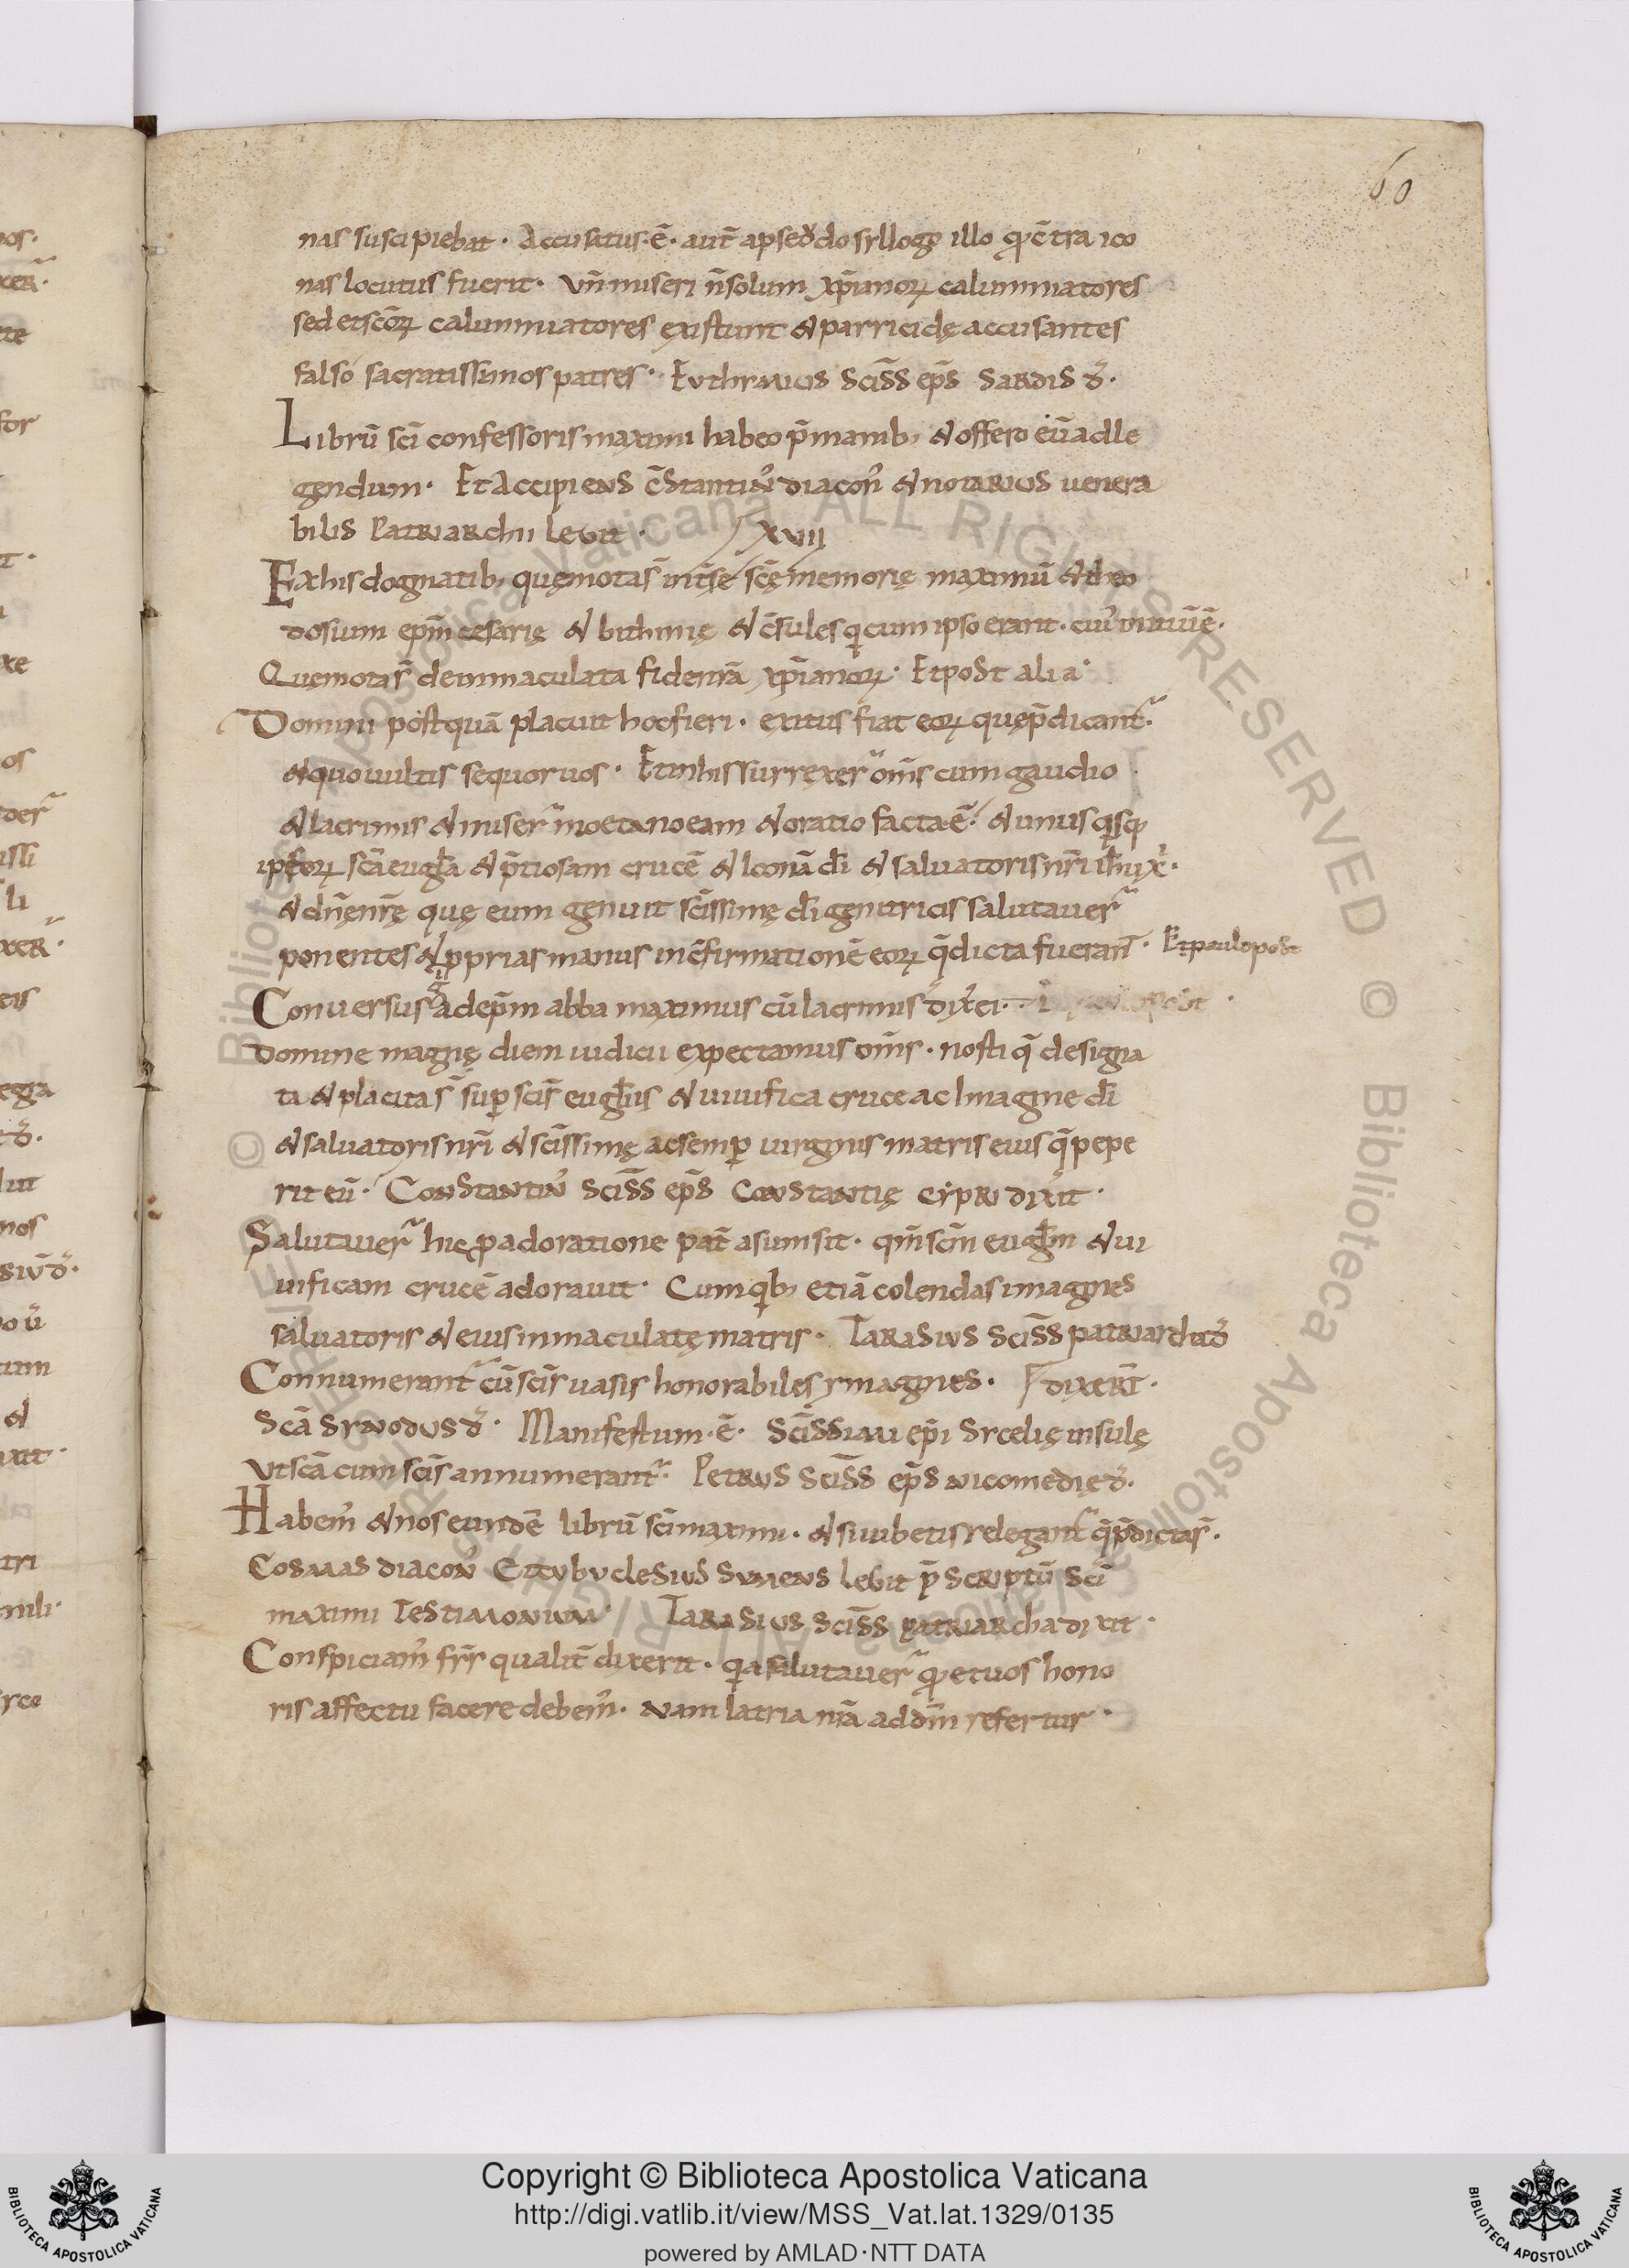 60
nas suscipiebat · Accusatus · ē · aut̄ a pseudosyllogo illo q̇ c̄tra ico
nas locutus fuerit · Vn̄ miseri n̄ solum xp̄ianoꝝ calumniatores
sed et sc̄oꝝ calumniatores existunt & parricidę accusantes
falso sacratissimos patres · Euthimius sciss̄ ep̄s sardis d̄ ·
Librū sci confessoris maximi habeo p̄ manib; & offero eū ad le
gendum · Et accipiens c̄stantin' diacon' & notarius venera
bilis patriarchii legit · XVII
Ex his dogmatib; quę mota s̄ int̄ se scę memorię maximū & theo
dosium ep̄m cesarię & bithinię & c̄sules q̇ cum ipso erant · cui' initiū ē ·
Quę mota s̄ de immaculata fide nr̄a xp̄ianoꝝ · Et post alia ·
Domini postquā placuit hoc fieri · exitus fiat eoꝝ quę p̄dicant̄ ·
& quo vultis sequor vos · Et in his surrexer̄ om̄s cum gaudio
& lacrimis & miser̄ moetanoeam & oratio facta ē · & unus q̇sq;
ipsoꝝ scā eugl̄ia & p̄tiosam crucē & Iconā di & salvatoris nr̄i ihu xp̄i ·
& dn̄ę nr̄ę quę eum genuit scissimę di genitricis salutaver̄
ponentes & p̄prias manus in c̄firmationē eoꝝ q̄ dicta fuerant · Et paulo post
Conversus ig ad ep̄m abba maximus cū lacrimis dix̄ ei ·
Domine magnę diem iudicii expectamus om̄s · nosti q̄ designa
ta & placita s̄ sup̄ scis eugl̄iis & vivifica cruce ac Imagine di
& salvatoris nr̄i & scissimę ac semp̄ virginis matris eius q̄ pepe
rit eū · Constantin' sciss̄ ep̄s constantię cypri dixit ·
Salutaver̄ hic p̄ adoratione pat̄ asumsit · qm̄ scm̄ eugl̄m & vi
vificam crucē adoravit · Cum q̇b; etiā colendas imagines
salvatoris & eius inmaculatę matris · Tarasius sciss̄ patriarcha d̄
Connumerant̄ cū scis vasis honorabiles ymagines · dixer̄t ·
Scā synodus d̄ · Manifestum · ē · Scissimi ep̄i sycelię insulę
Ut scā cum scis annumerant̄ · Petrus sciss̄ ep̄s nicomedię d̄ ·
Habem' & nos eundē librū sci maximi · & si iubetis relegant̄ q̄ p̄dicta s̄ ·
Cosmas diacon' & cubuclesius sumens legit p̄scriptū sci
maximi testimonium · Tarasius sciss̄ patriarcha dixit ·
Conspiciam' fr̄s qualit̄ dixerit · q̇a salutaver̄ q̇ et vos hono
ris affectu facere debem' · Nam latria nr̄a ad dm̄ refertur ·
Copyright © Biblioteca Apostolica Vaticana
http://digi.vatlib.it/view/MSS_Vat.lat.1329/0135
powered by AMLAD·NTT DATA
BIBLIOTECA APOSTOLICA VATICANA
BIBLIOTECA APOSTOLICA VATICANA